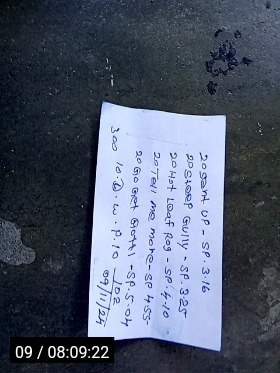 20 Sent UP - SP. 3.16
20 Steep Gully - SP. 3.25
20 Hot Leaf Rog - SP. 4.10
20 Tell me more - SP 4.55
20 Go Get Glotti - SP. 5.04
300 10. W. P. 10 J02
09/11/24
09 / 08:09:22